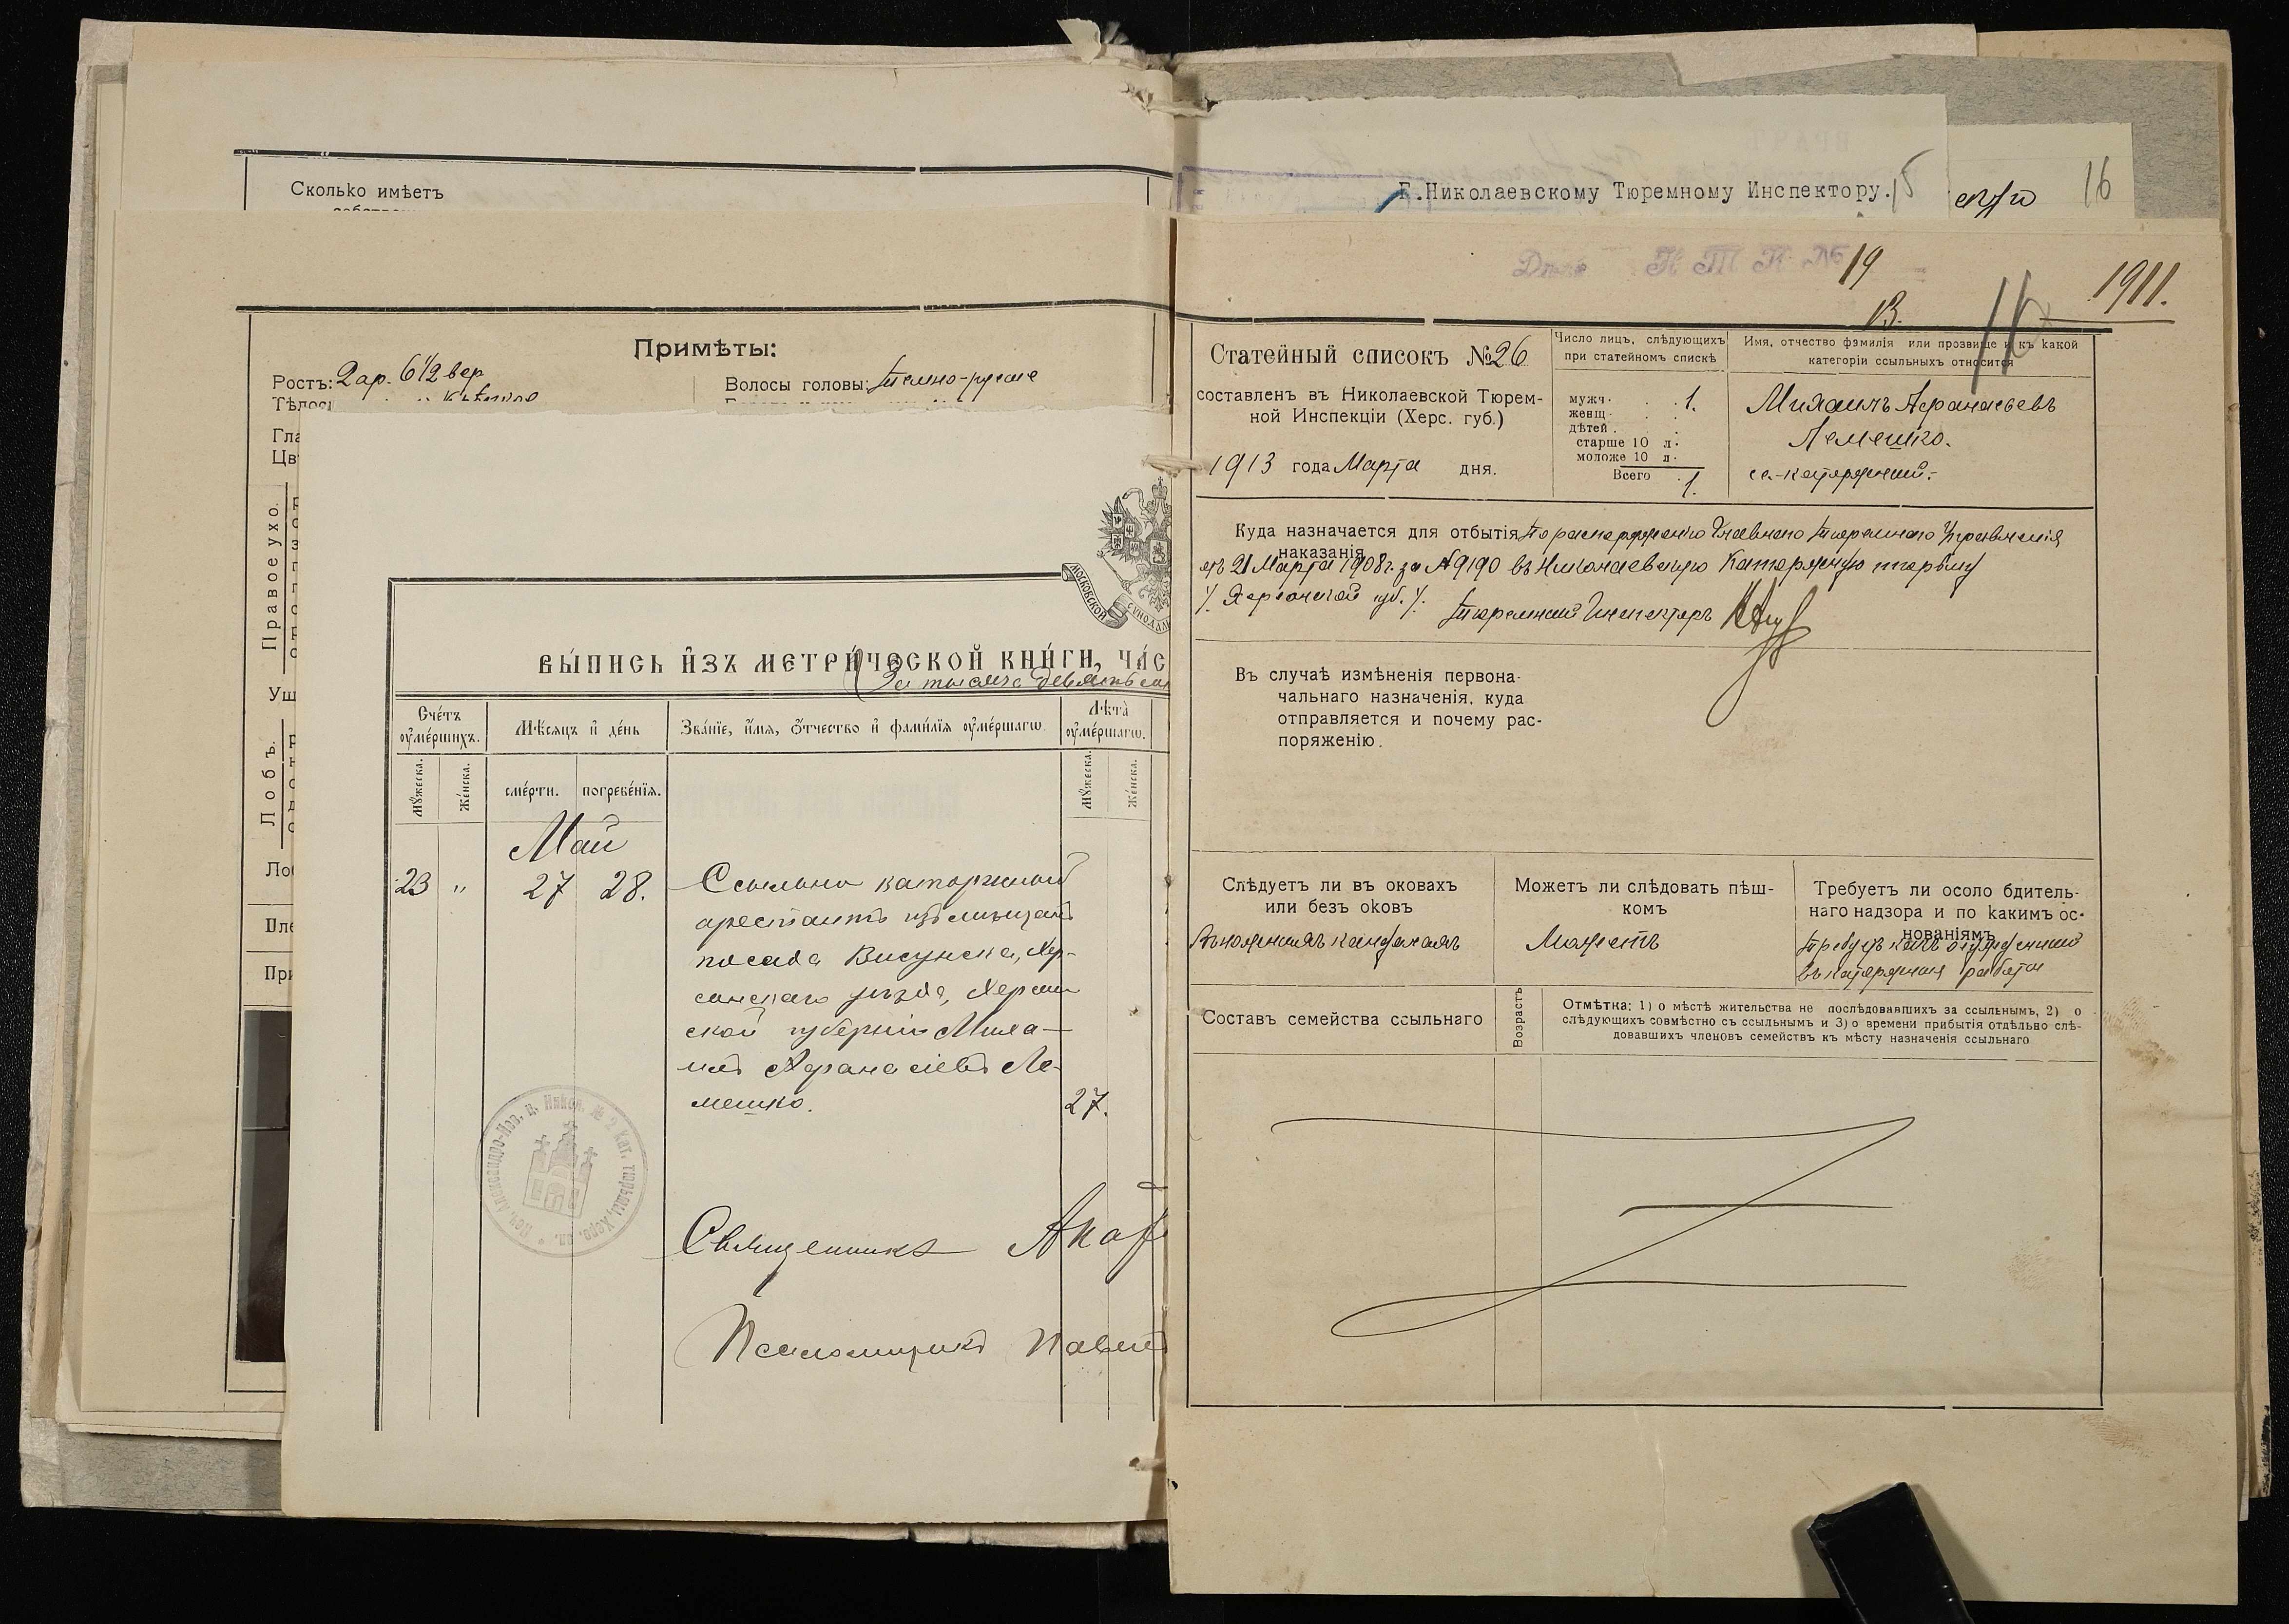 Сколько имѣетъ
Примѣты:
Ростъ: 2 ар. 6 1/2 вер
Волосы головы: темно-русые
Правое ухо.
Лобъ.
ВЫПИСЬ ИЗЪ МЕТРИЧЕСКОЙ КНИГИ, ЧАС
За тысяча девять
Счетъ оумершихъ.
Мѣсяцъ и день
Званіе, имя, отчество и фамилія оумершаго
Лѣта оумершаго.
Мужеска.
Женска.
смерти.
погребенія.
Мужеска.
Женска.
Май
23 " 27 28. Ссыльно каторжный
арестантъ изъ мѣщанъ
посада Висунска, Хер-
сонскаго уѣзда, Херсон
ской губерніи Миха-
илъ Афанасіевъ Ле-
мешко. 27.
Священникъ
Псаломщикъ Павелъ
Г.Николаевскому Тюремному Инспектору. 15
16
Дѣло К Т К № 19
1911.
13.
16
Статейный списокъ № 26
составленъ въ Николаевской Тюрем-
ной Инспекціи (Херс. губ.)
1913 года Марта дня.
Число лицъ, слѣдующихъ
при статейномъ спискѣ
мужч. 1.
женщ.
дѣтей.
старше 10 л.
моложе 10 л.
Всего 1.
Имя, отчество фамилія или прозвище и къ какой
категоріи ссыльныхъ относится
Михаилъ Афанасьевъ
Лемешко.
с.-каторжный.
Куда назначается для отбытія наказанія По распоряженію Главнаго Тюремнаго Управленія
отъ 21 Марта 1908 г. за № 9190 въ Николаевскую Каторжную тюрьму
/. Херсонской губ. /.
Тюремный Инспекторъ
Въ случаѣ измѣненія первона-
чальнаго назначенія, куда
отправляется и почему рас-
поряженію.
Слѣдуетъ ли въ оковахъ
или безъ оковъ
Въ ножныхъ кандалахъ
Можетъ ли слѣдовать пѣш-
комъ
Можетъ
Требуетъ ли осоло бдитель-
наго надзора и по какимъ ос-
нованіямъ
Требуетъ какъ осужденный
въ каторжныя работы
Составъ семейства ссыльнаго
Возрастъ
Отмѣтка: 1) о мѣстѣ жительства не послѣдовавшихъ за ссыльнымъ, 2) о
слѣдующихъ совмѣстно съ ссыльнымъ и 3) о времени прибытія отдѣльно слѣ-
довавшихъ членовъ семействъ къ мѣсту назначенія ссыльнаго